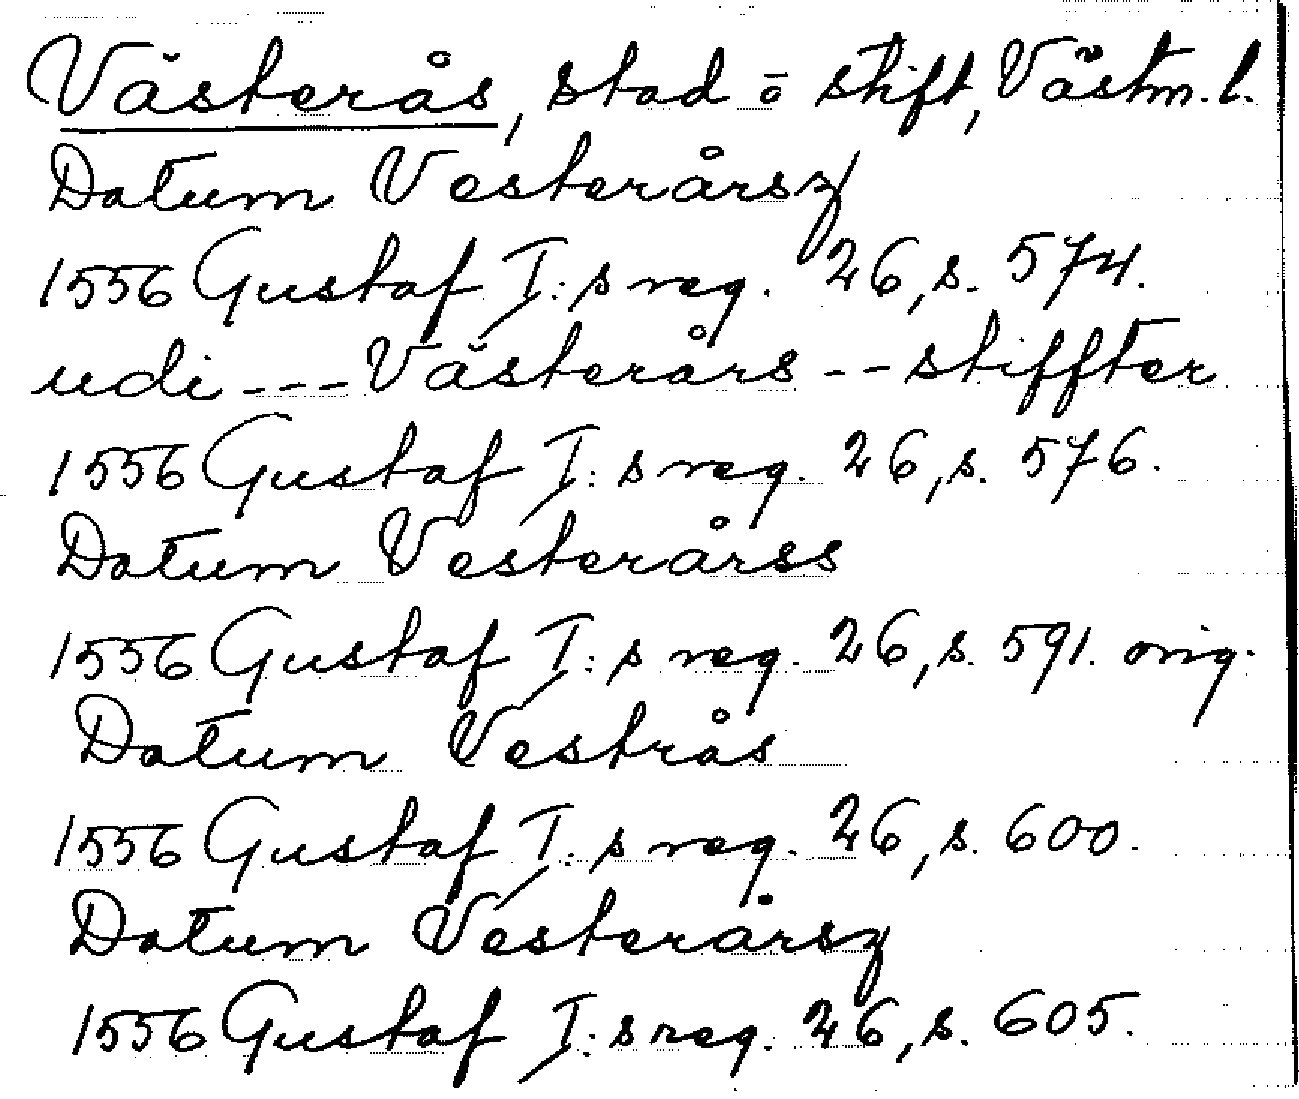 Västerås, stad o stift, Västm. l.
Datum Vesterårsz
1556 Gustaf I:s reg. 26, s. 574.
udi --- Västerårs -- stiffter
1556 Gustaf I:s reg. 26, s. 576.
Datum Vesterårss
1556 Gustaf I:s reg. 26, s. 591. orig.
Datum Vestrås
1556 Gustaf I:s reg. 26, s. 600.
Datum Vesterårsz
1556 Gustaf I:s reg. 26, s. 605.